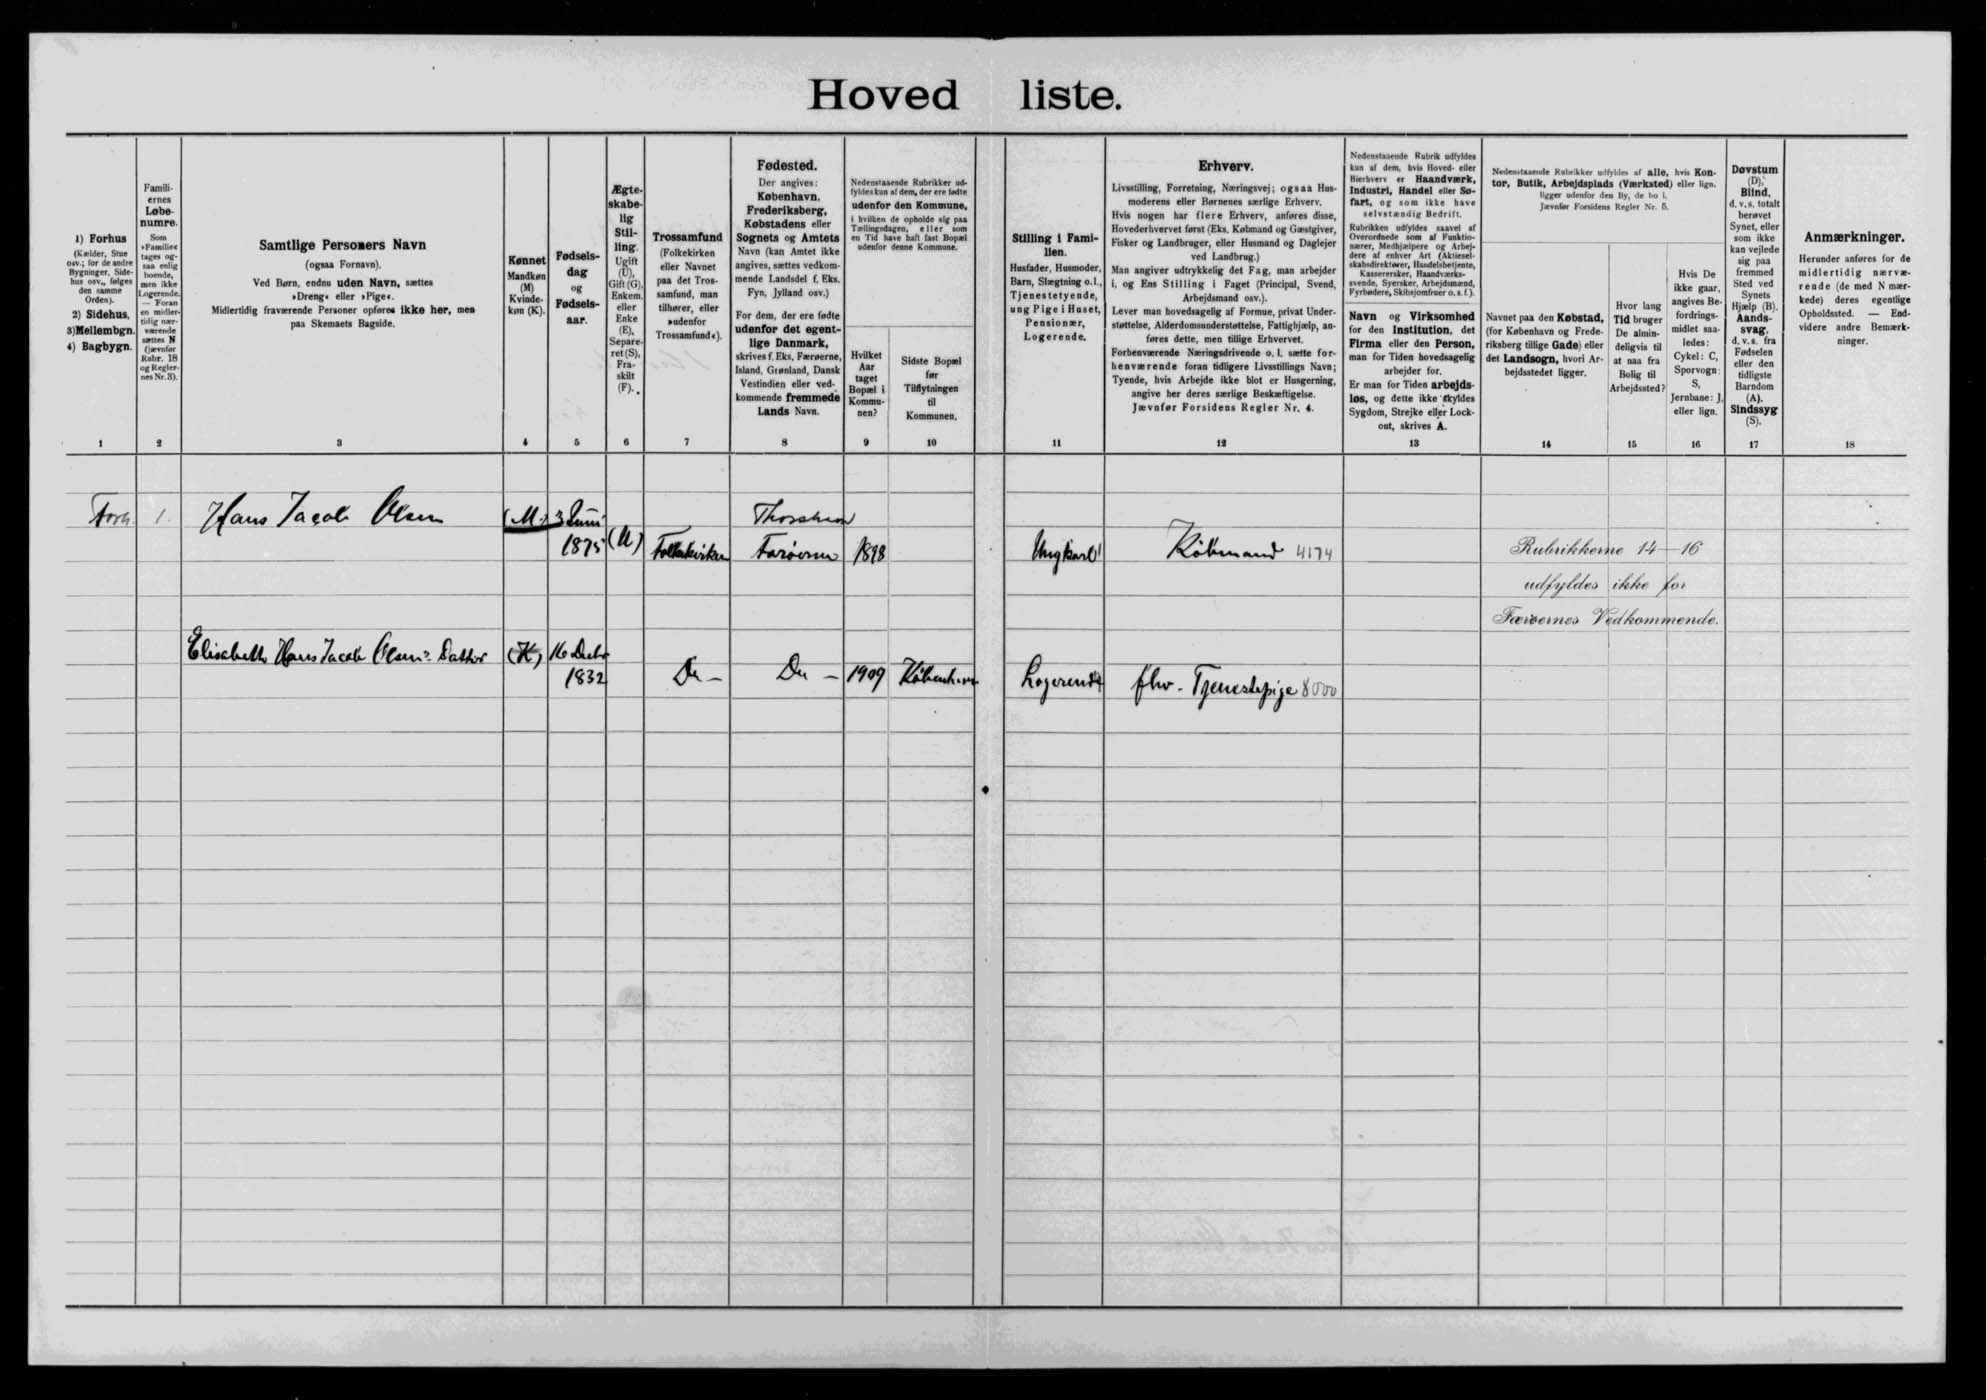 Hovedliste.
1) Forhus
(Kælder, Stue
osv.; for de andre
Bygninger, Side-
hus osv., følges
den samme
Orden).
2) Sidehus,
3) Mellembgn.
4) Bagbygn.
Famili-
ernes
Løbe-
numre.
Som
»Familie«
tages og-
saa enlig
boende,
men ikke
Logerende.
— Foran
en midler-
tidig nær-
værende
sættes N
(jævnfør
Rubr. 18
og Regler-
nes Nr. 3).
Samtlige Personers Navn
(ogsaa Fornavn).
Ved Børn, endnu uden Navn, sættes
»Dreng« eller »Pige«.
Midlertidig fraværende Personer opføres ikke her, men
paa Skemaets Bagside.
Kønnet
Mandkøn
(M)
Kvinde-
køn (K).
Fødsels-
dag
og
Fødsels-
aar.
Ægte-
skabe-
lig
Stil-
ling.
Ugift
(U),
Gift (G),
Enkem.
eller
Enke
(E),
Separe-
ret (S),
Fra-
skilt
(F).
Trossamfund
(Folkekirken
eller Navnet
paa det Tros-
samfund, man
tilhører, eller
»udenfor
Trossamfund«).
Fødested.
Der angives:
København,
Frederiksberg,
Købstadens eller
Sognets og Amtets
Navn (kan Amtet ikke
angives, sættes vedkom-
mende Landsdel f. Eks.
Fyn, Jylland osv.)
For dem, der ere fødte
udenfor det egent-
lige Danmark,
skrives f. Eks. Færøerne,
Island, Grønland, Dansk
Vestindien eller ved-
kommende fremmede
Lands Navn.
Nedenstaaende Rubrikker ud-
fyldes kun af dem, der ere fødte
udenfor den Kommune,
i hvilken de opholde sig paa
Tællingsdagen, eller som
en Tid have haft fast Bopæl
udenfor denne Kommune.
Hvilket
Aar
taget
Bopæl i
Kommu-
nen?
Sidste Bopæl
før
Tilflytningen
til
Kommunen.
Stilling i Fami-
lien.
Husfader, Husmoder,
Barn, Slægtning o. l.,
Tjenestetyende,
ung Pige i Huset,
Pensionær,
Logerende.
Erhverv.
Livsstilling, Forretning, Næringsvej; ogsaa Hus-
moderens eller Børnenes særlige Erhverv.
Hvis nogen har flere Erhverv, anføres disse,
Hovederhvervet først (Eks. Købmand og Gæstgiver,
Fisker og Landbruger, eller Husmand og Daglejer
ved Landbrug.)
Man angiver udtrykkelig det Fag, man arbejder
i, og Ens Stilling i Faget (Principal, Svend,
Arbejdsmand osv.).
Lever man hovedsagelig af Formue, privat Under-
støttelse, Alderdomsunderstøttelse, Fattighjælp, an-
føres dette, men tillige Erhvervet.
Forhenværende Næringsdrivende o. l. sætte for-
henværende foran tidligere Livsstillings Navn;
Tyende, hvis Arbejde ikke blot er Husgerning,
angive her deres særlige Beskæftigelse.
Jævnfør Forsidens Regler Nr. 4.
Nedenstaaende Rubrik udfyldes
kun af dem, hvis Hoved- eller
Bierhverv er Haandværk,
Industri, Handel eller Sø-
fart, og som ikke have
selvstændig Bedrift.
Rubrikken udfyldes saavel af
Overordnede som af Funktio-
nærer, Medhjælpere og Arbej-
dere af enhver Art (Aktiesel-
skabsdirektører, Handelsbetjente,
Kasserersker, Haandværks-
svende, Syersker, Arbejdsmænd,
Fyrbødere, Skibsjomfruer o. s. f.).
Navn og Virksomhed
for den Institution, det
Firma eller den Person,
man for Tiden hovedsagelig
arbejder for.
Er man for Tiden arbejds-
løs, og dette ikke skyldes
Sygdom, Strejke eller Lock-
out, skrives A.
Nedenstaaende Rubrikker udfyldes af alle, hvis Kon-
tor, Butik, Arbejdsplads (Værksted) eller lign.
ligger udenfor den By, de bo i.
Jævnfør Forsidens Regler Nr. 5.
Navnet paa den Købstad,
(for København og Frede-
riksberg tillige Gade) eller
det Landsogn, hvori Ar-
bejdsstedet ligger.
Hvor lang
Tid bruger
De almin-
deligvis til
at naa fra
Bolig til
Arbejdssted?
Hvis De
ikke gaar,
angives Be-
fordrings-
midlet saa-
ledes:
Cykel: C,
Sporvogn:
S,
Jernbane: J,
eller lign.
Døvstum
(D),
Blind,
d. v. s. totalt
berøvet
Synet, eller
som ikke
kan vejlede
sig paa
fremmed
Sted ved
Synets
Hjælp (B).
Aands-
svag,
d. v. s. fra
Fødselen
eller den
tidligste
Barndom
(A).
Sindssyg
(S).
Anmærkninger.
Herunder anføres for de
midlertidig nærvæ-
rende (de med N mær-
kede) deres egentlige
Opholdssted. — End-
videre andre Bemærk-
ninger.
1 2 3 4 5 6 7 8 9 10 11 12 13 14 15 16 17 18
Forh. 1. Hans Jacob Olsen (M.) 3 Juni Thorshavn
1875 (U) Folkekirken Færøerne 1898 Ungkarl Købmand 4174
Rubrikkerne 14—16
udfyldes ikke for
Færøernes Vedkommende.
Elisabeth Hans Jacob Olsens Datter (K) 16 Decbr
1832 Do — Do — 1909 København Logerende fhv. Tjenestepige 8000